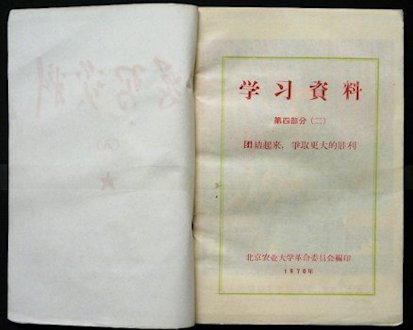 学习資料
第四部分（二）
团結起来，爭取更大的胜利
北京农业大学革命委员会編印
1970年